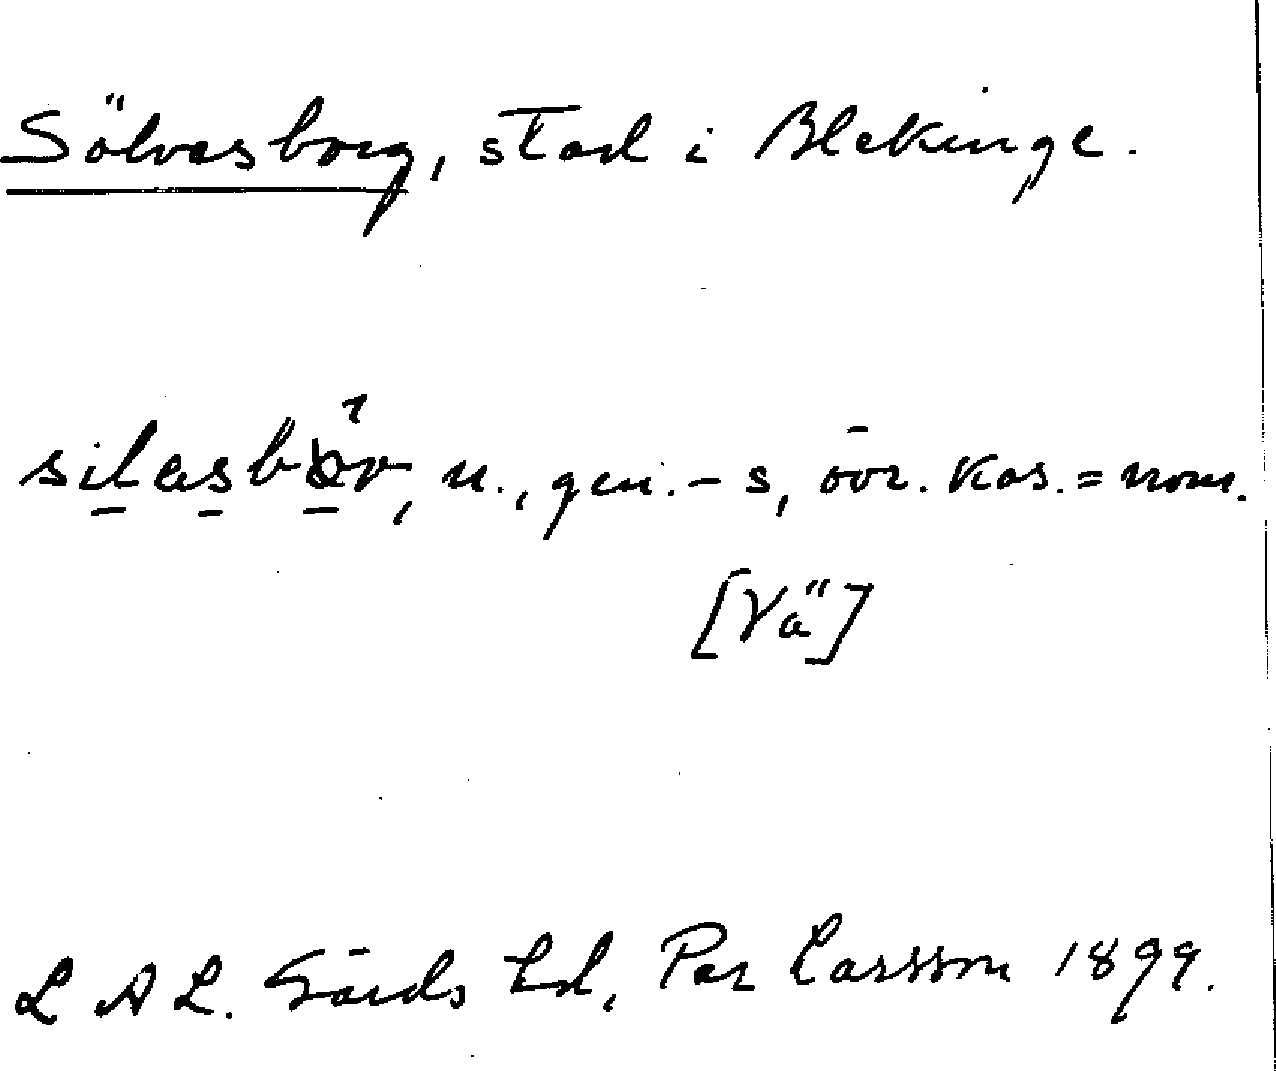 Sölvesborg, stad i Blekinge.
silasbår, n., gen. -s, övr. kas. = nom.
[Vä]
L A L. Gärds hd, Per Larsson 1899.